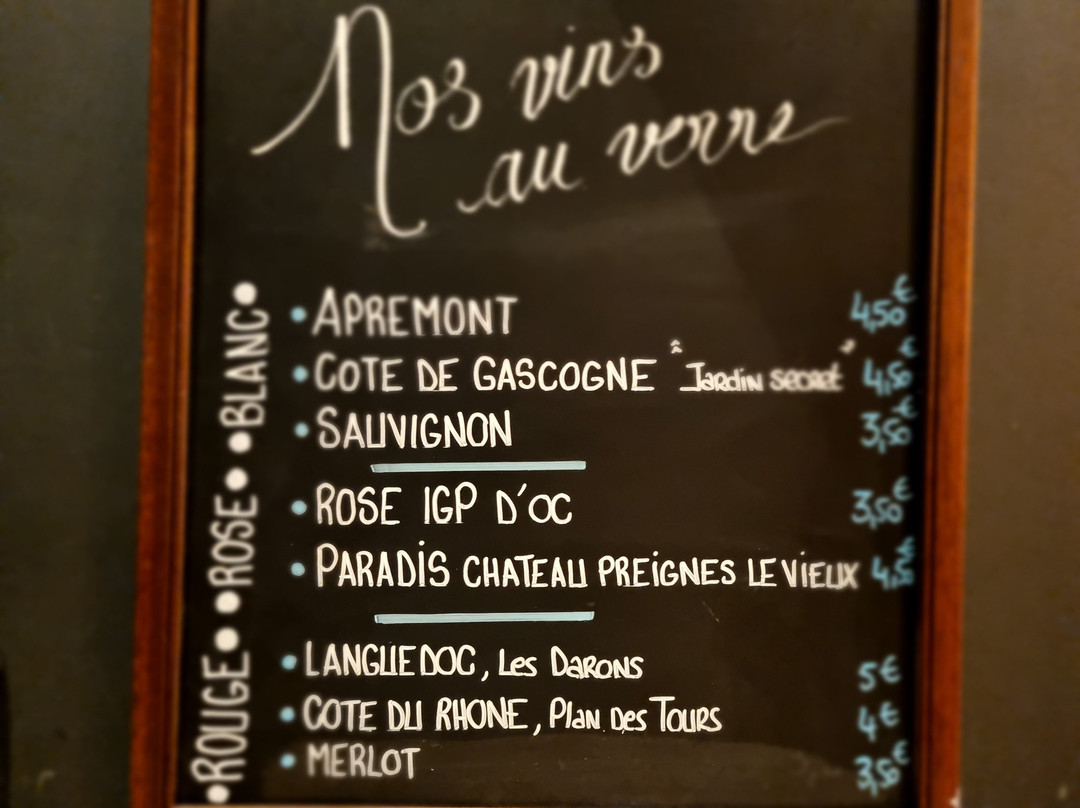 Nos vins
au verre
BLANC
• APREMONT 4,50€
• COTE DE GASCOGNE "Jardin secret" 4,50€
• SAUVIGNON 3,50€
ROSE
• ROSE IGP D'OC 3,50€
• PARADIS CHATEAU PREIGNES LE VIEUX 4,50€
ROUGE
• LANGUEDOC, Les DARONS 5€
• COTE DU RHONE, Plan Des TOURS 4€
• MERLOT 3,50€